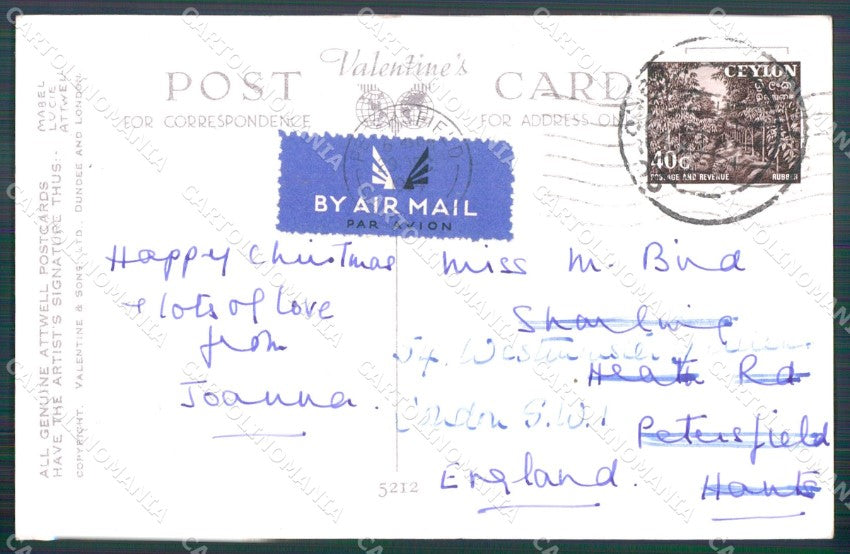 POST Valentine's CARD
FOR CORRESPONDENCE FOR ADDRESS ONLY
CEYLON
40c
POSTAGE AND REVENUE RUBBER
BY AIR MAIL
PAR AVION
Happy Christmas
+ lots of love
from
Joanna.
Miss M. Bird
Heath Rd
London S.W.1
Petersfield
Hants
England.
5212
ALL GENUINE ATTWELL POSTCARDS
HAVE THE ARTIST'S SIGNATURE THUS:-
MABEL
LUCIE
ATTWELL
COPYRIGHT. VALENTINE & SONS, LTD. DUNDEE AND LONDON.
CARTOLINOMANIA